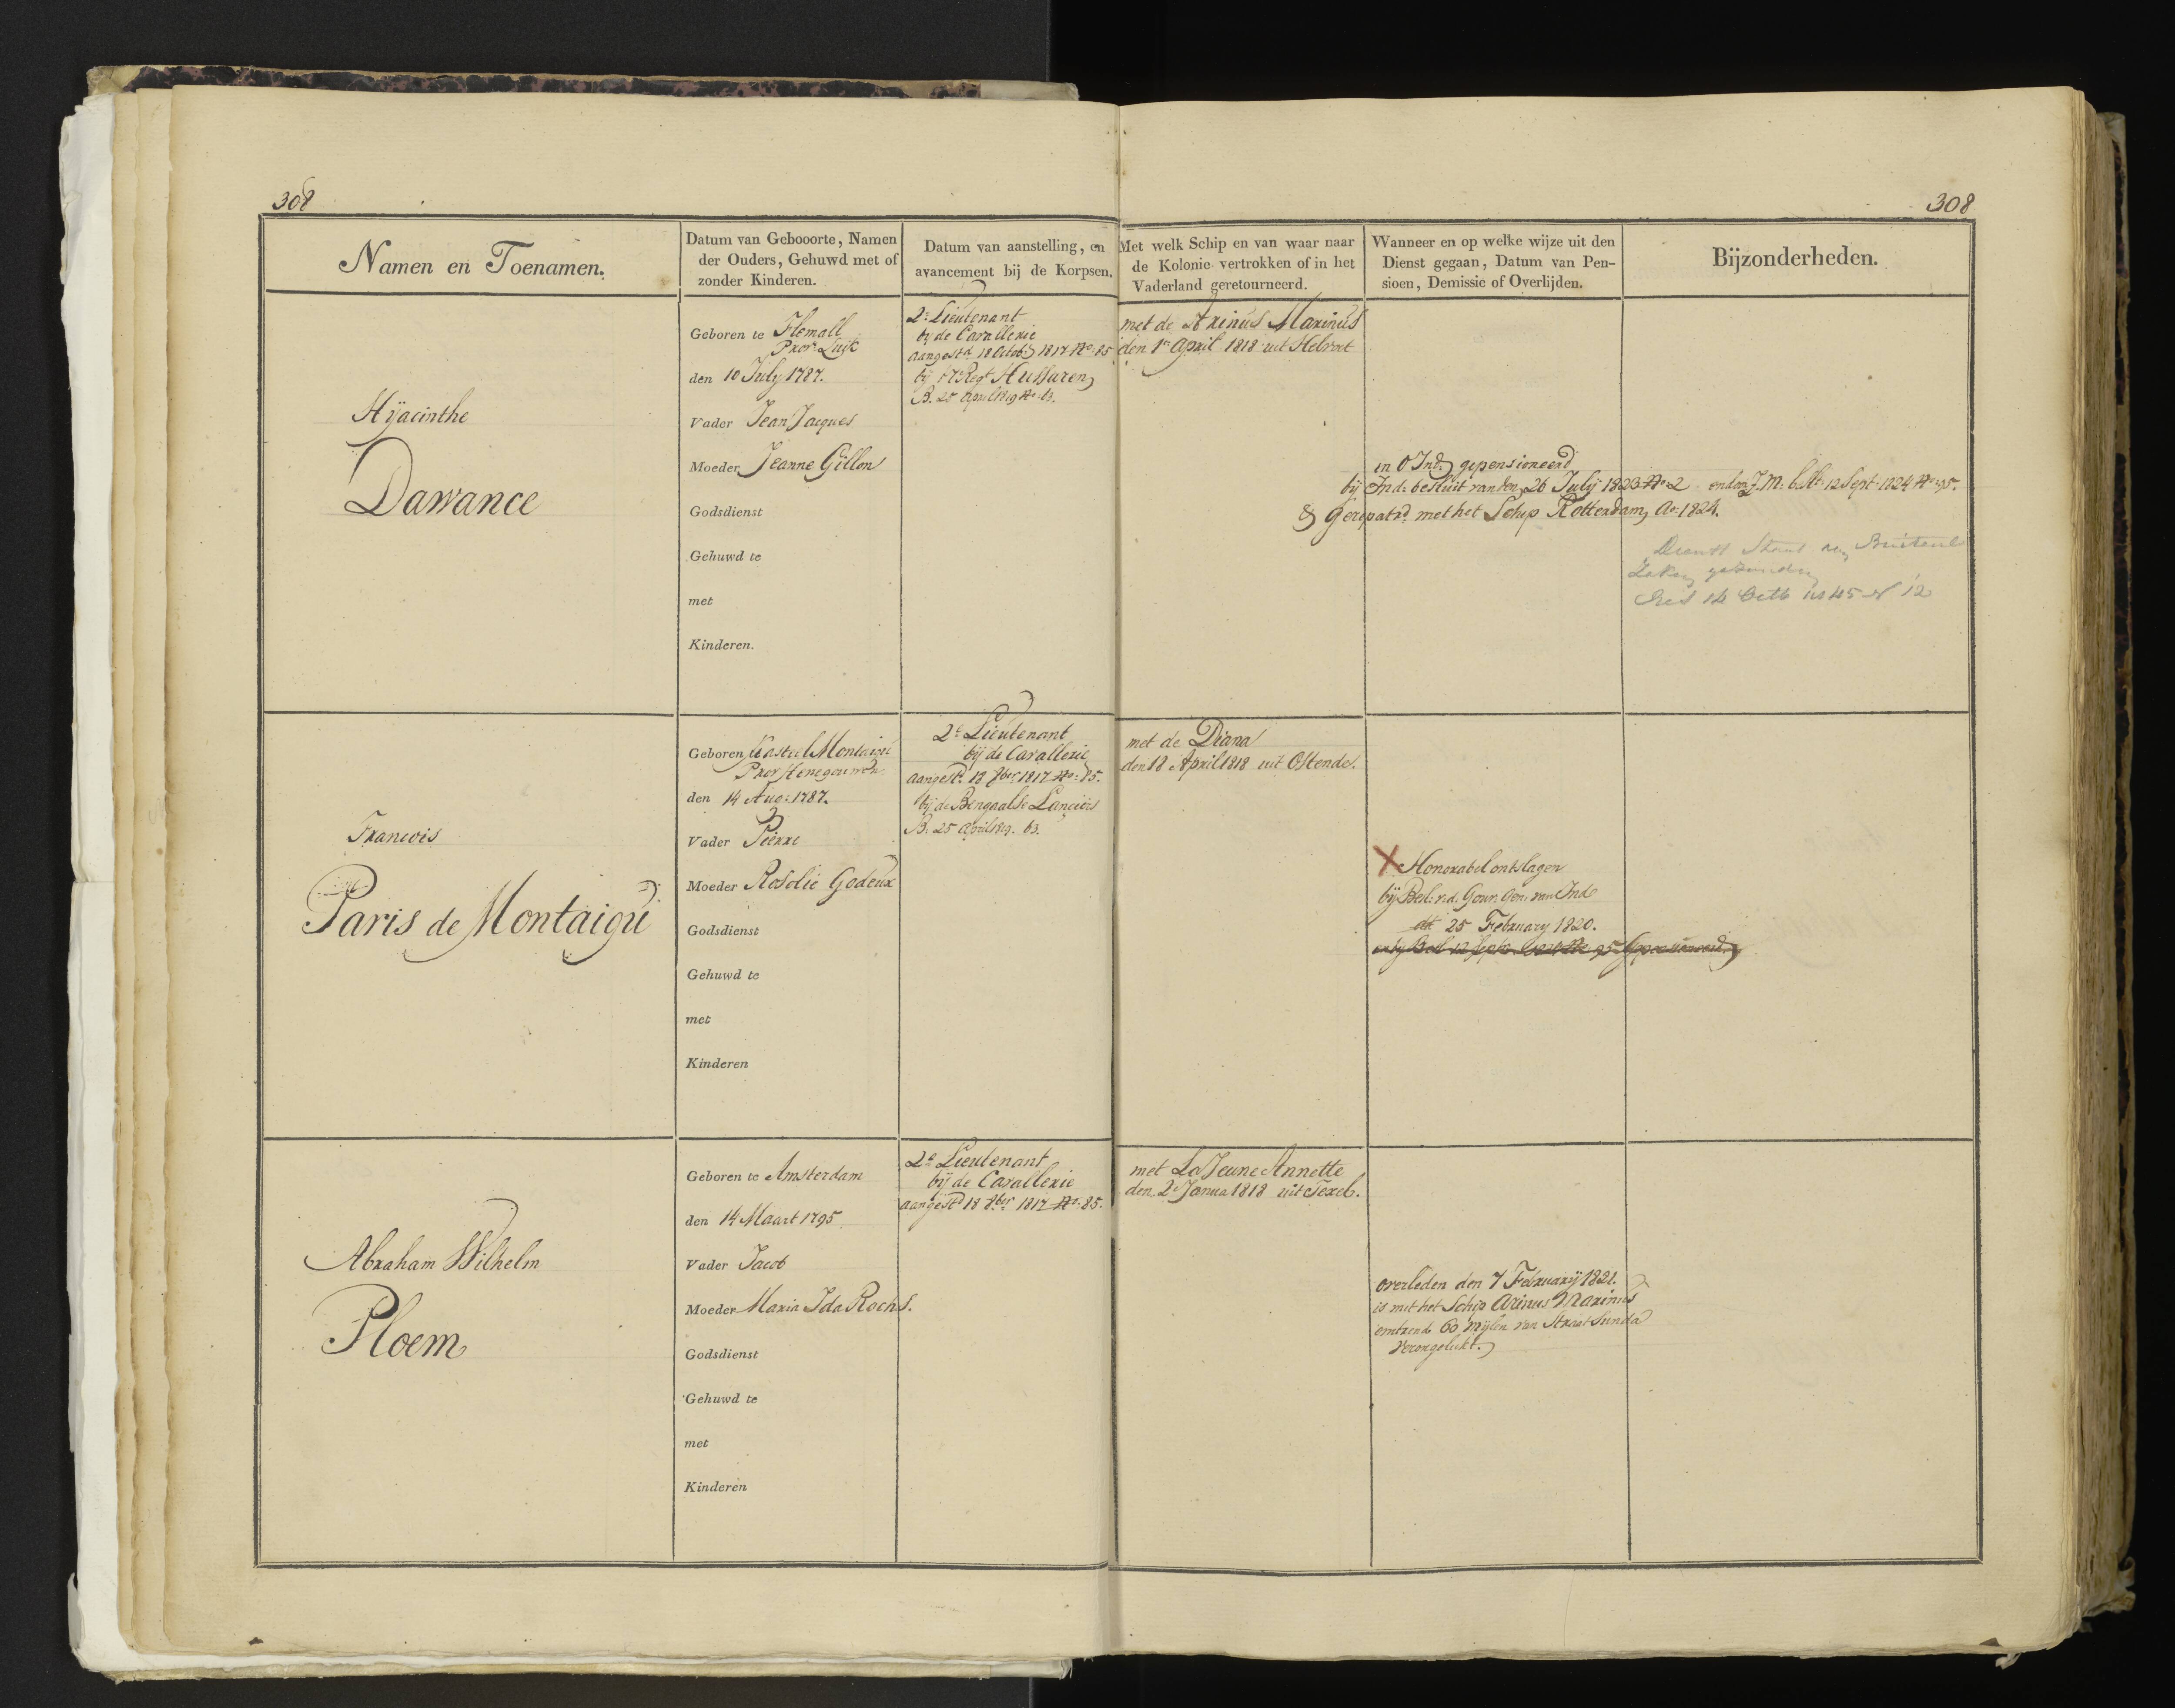 308
308
Namen en Toenamen.
Datum van Gebooorte, Namen
der Ouders, Gehuwd met of
zonder Kinderen.
Datum van aanstelling, en
avancement bij de Korpsen.
Met welk Schip en van waar naar
de Kolonie vertrokken of in het
Vaderland geretourneerd.
Wanneer en op welke wijze uit den
Dienst gegaan, Datum van Pen-
sioen, Demissie of Overlijden.
Bijzonderheden.
Hÿacinthe
Dawance
Geboren te Flemall
Prov: Luijk
den 10 July 1787.
Vader Jean Jacques
Moeder Jeanne Gillon
Godsdienst
Gehuwd te
met
Kinderen.
2e Lieutenant
bij de Cavallerie
aangestd 18 Octob 1817 No: 85
bij 't 7e Regt Hussaren
B. 25 april 1819 No: 63.
met de Arinus Marinus
den 1e April 1818 uit Helvoet
in O Ind: gepensioneerd
bij Ind: besluit van den 26 July 1823 No 2 en door Z.M. bslt 12 Sept 1824 No 95.
& Gerepatrd met het Schip Rotterdam Ao 1824.
Dienst Staat aan Buitenl
Zaken gezonden
14 Octb 1845 N 12
Francois
Paris de Montaigu
Geboren Kasteel Montaigu
Prov Henegouwen
den 14 Aug: 1787.
Vader Pierre
Moeder Rosolie Godeux
Godsdienst
Gehuwd te
met
Kinderen
2e Lieutenant
bij de Cavallerie
aangestd 18 8ber 1817 No: 85.
bij de Bengaalse Lanciers
B. 25 april 1819. 63.
met de Diana
den 18 April 1818 uit Ostende.
X Honorabel ontslagen
bij Besl: v.d. Gouv. Gen. van Inde
dd 25 February 1820.
en bij Besl 12 Sept 1824 No 95 Gepensioneerd
Abraham Wilhelm
Ploem
Geboren te Amsterdam
den 14 Maart 1795
Vader Jacob
Moeder Maria Ida Rochs.
Godsdienst
Gehuwd te
met
Kinderen
2e Lieutenant
bij de Cavallerie
aangestd 18 8ber 1817 No: 85.
met La Jeune Annette
den 2e Janua 1818 uit Texel.
overleden den 7 Februarij 1821.
is met het Schip Arinus Marinus
omtrend 60 mijlen van Straat Sunda
Verongelukt.